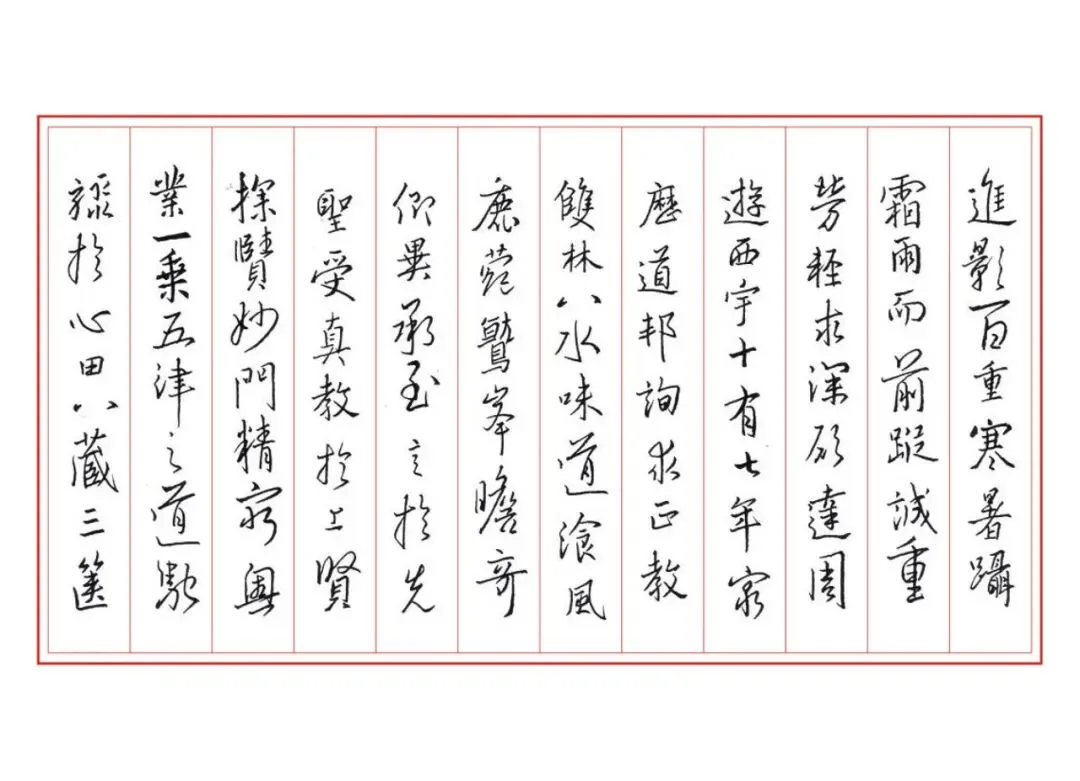 進影百重寒暑躡
霜雨而前蹤誠重
勞輕求深願達周
遊西宇十有七年窮
歷道邦詢求正教
雙林八水味道湌風
鹿菀鷲峯瞻奇
仰異承至言於先
聖受真教於上賢
探賾妙門精窮奧
業一乗五津之道馳
驟於心田八蔵三篋